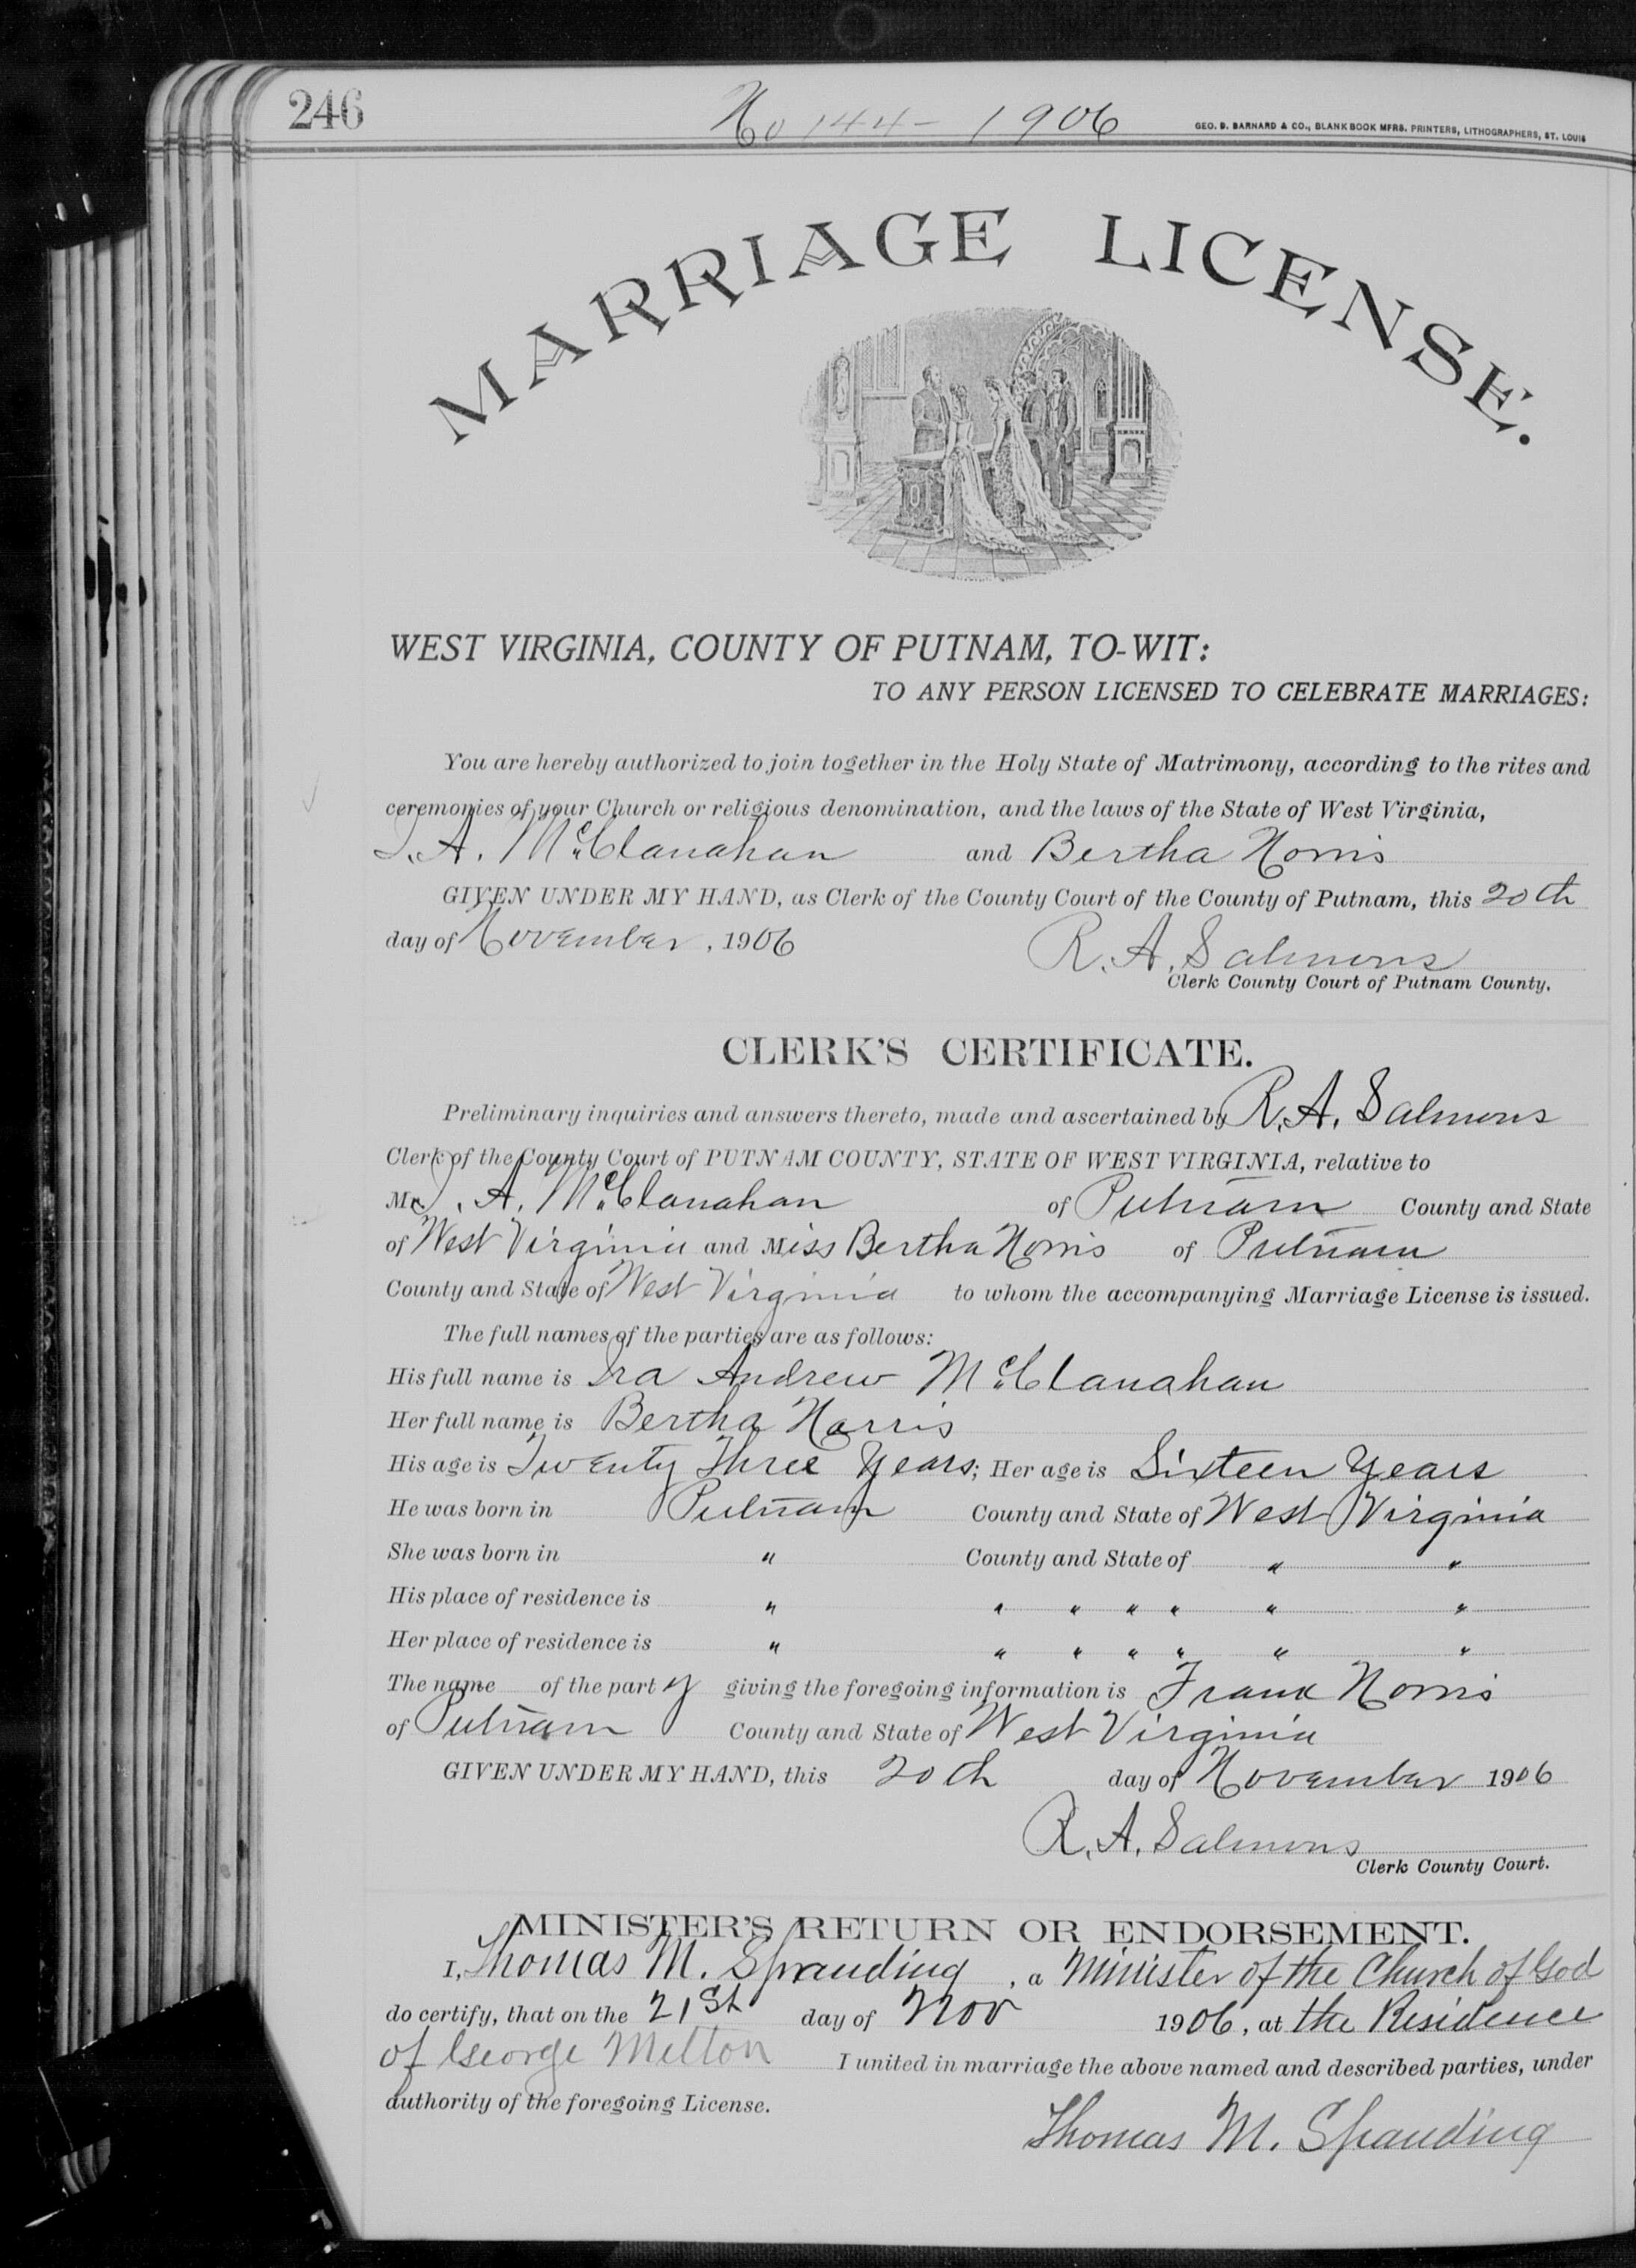 246
No 144 - 1906
GEO. D. BARNARD & CO., BLANK BOOK MFRS. PRINTERS, LITHOGRAPHERS, ST. LOUIS
MARRIAGE LICENSE.
WEST VIRGINIA, COUNTY OF PUTNAM, TO-WIT:
TO ANY PERSON LICENSED TO CELEBRATE MARRIAGES:
You are hereby authorized to join together in the Holy State of Matrimony, according to the rites and
ceremonies of your Church or religious denomination, and the laws of the State of West Virginia,
I. A. McClanahan and Bertha Norris
GIVEN UNDER MY HAND, as Clerk of the County Court of the County of Putnam, this 20th
day of November, 1906 R. A. Salmons
Clerk County Court of Putnam County.
CLERK'S CERTIFICATE.
Preliminary inquiries and answers thereto, made and ascertained by R. A. Salmons
Clerk of the County Court of PUTNAM COUNTY, STATE OF WEST VIRGINIA, relative to
Mr. I. A. McClanahan of Putnam County and State
of West Virginia and Miss Bertha Norris of Putnam
County and State of West Virginia to whom the accompanying Marriage License is issued.
The full names of the parties are as follows:
His full name is Ira Andrew McClanahan
Her full name is Bertha Norris
His age is Twenty Three Years; Her age is Sixteen Years
He was born in Putnam County and State of West Virginia
She was born in " County and State of " "
His place of residence is " " " " " " "
Her place of residence is " " " " " " "
The name of the party giving the foregoing information is Frank Norris
of Putnam County and State of West Virginia
GIVEN UNDER MY HAND, this 20th day of November 1906
R. A. Salmons
Clerk County Court.
MINISTER'S RETURN OR ENDORSEMENT.
I, Thomas M. Sprauding, a Minister of the Church of God
do certify, that on the 21st day of Nov 1906, at the Residence
of George Melton I united in marriage the above named and described parties, under
authority of the foregoing License.
Thomas M. Sprauding